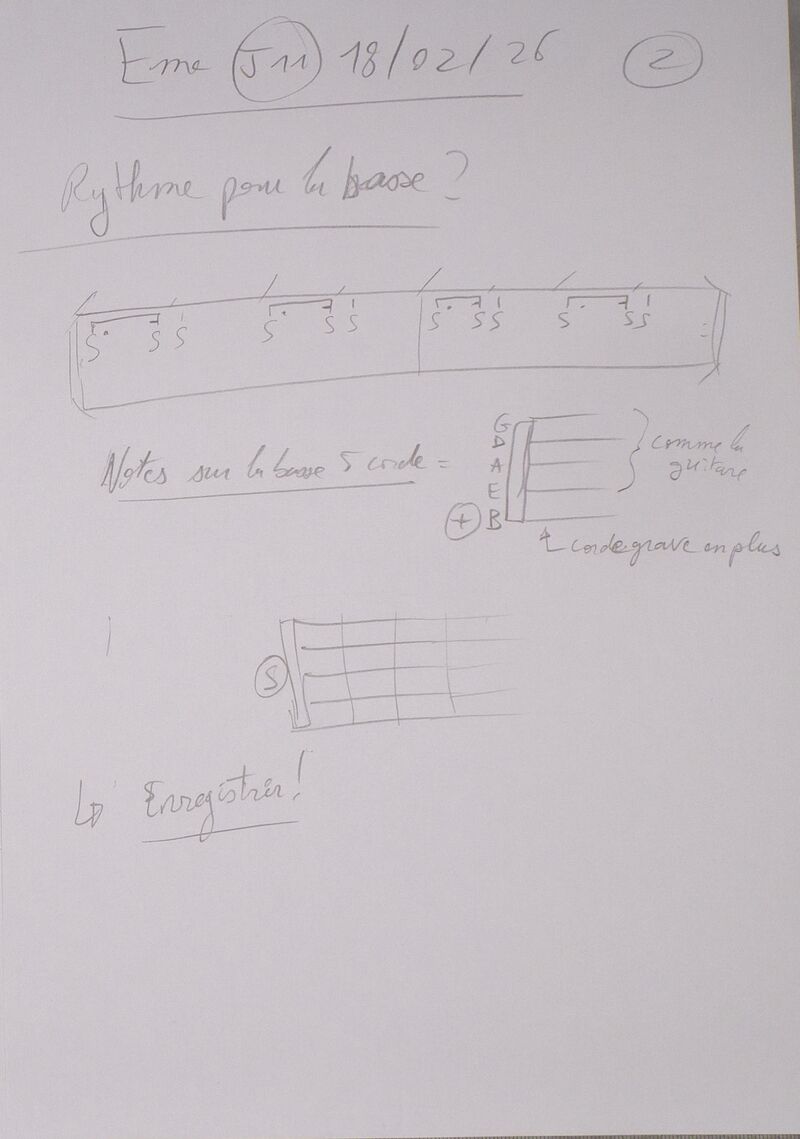 Eme J11 18/02/26 2
Rythme pour la basse ?
S S S S S S S S S S S S
Notes sur la basse 5 corde =
G
D
A
E
+ B
comme la
guitare
corde grave en plus
S
Enregistrer !